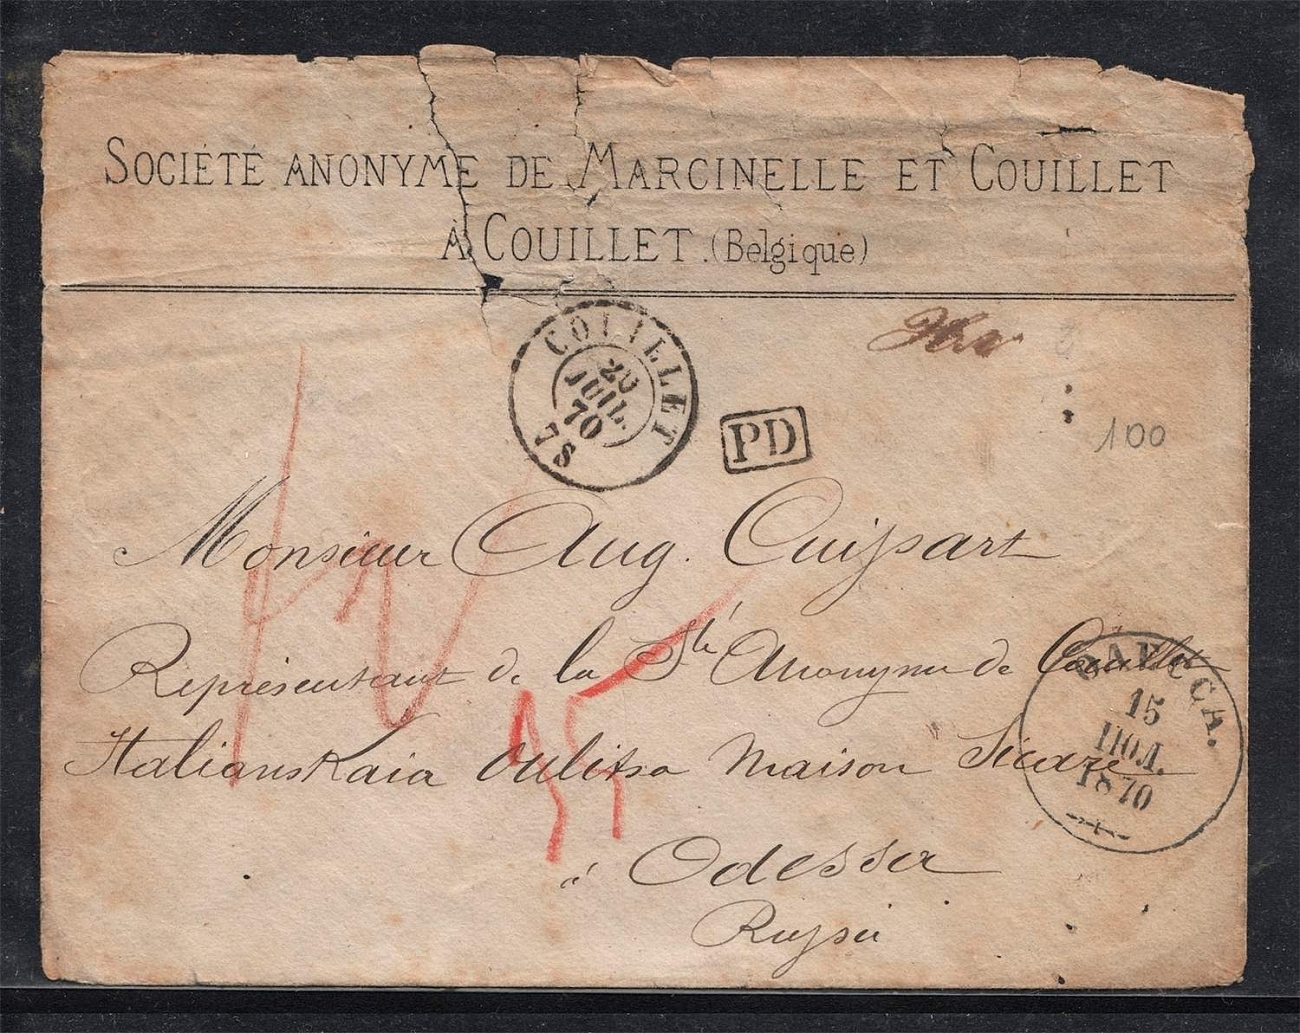 SOCIÉTÉ ANONYME DE MARCINELLE ET COUILLET
À COUILLET. (Belgique)
COUILLET
20
JUIL.
70
7S
PD
100
Monsieur Aug. Quissart
Représentant de la Sté Anonyme de Couillet
Italianskaia oulitsa maison Sicare
à Odessa
Russie
15
ІЮЛ.
1870
12
35